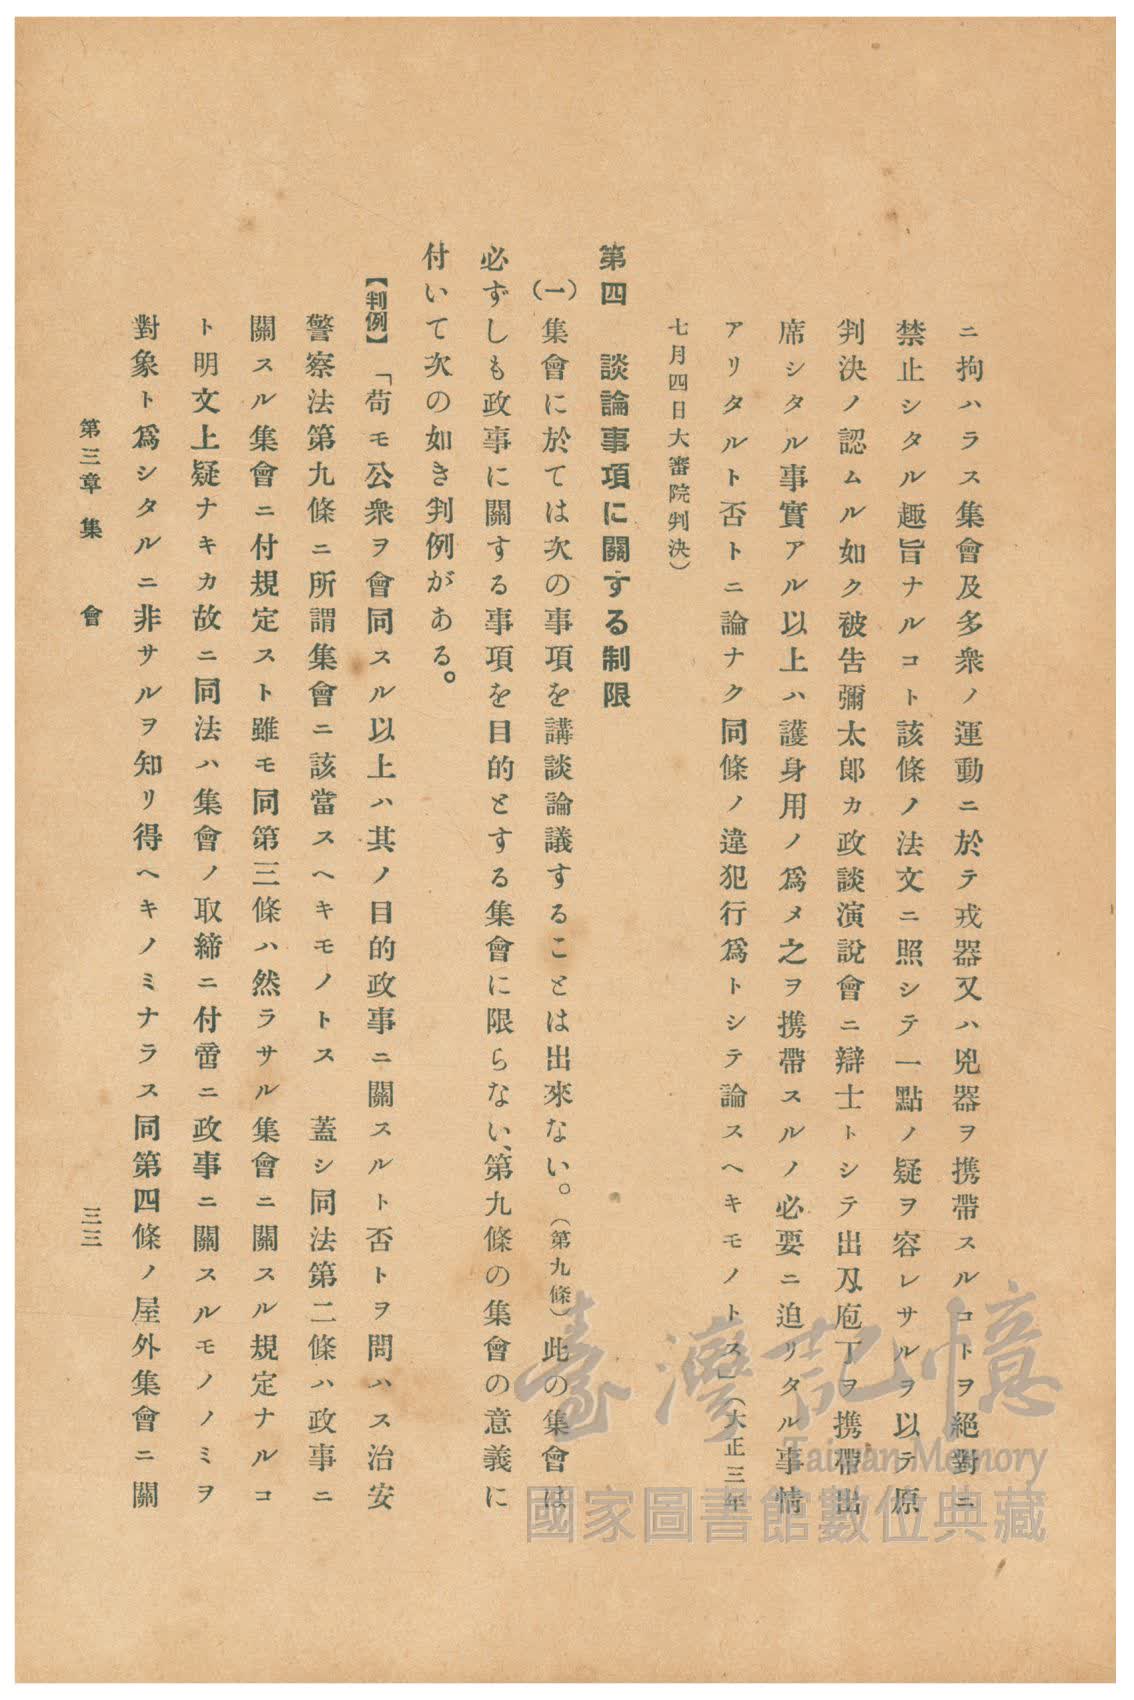 ニ拘ハラス集會及多衆ノ運動ニ於テ戎器又ハ兇器ヲ携帶スルコトヲ絕對ニ
禁止シタル趣旨ナルコト該條ノ法文ニ照シテ一點ノ疑ヲ容レサルヲ以テ原
判決ノ認ムル如ク被吿彌太郞カ政談演說會ニ辯士トシテ出刄庖丁ヲ携帶出
席シタル事實アル以上ハ護身用ノ爲メ之ヲ携帶スルノ必要ニ迫リタル事情
アリタルト否トニ論ナク同條ノ違犯行爲トシテ論スヘキモノトス」（大正三年
七月四日大審院判決）
第四　談論事項に關する制限
（一）集會に於ては次の事項を講談論議することは出來ない。（第九條）此の集會は
必ずしも政事に關する事項を目的とする集會に限らない、第九條の集會の意義に
付いて次の如き判例がある。
【判例】「苟モ公衆ヲ會同スル以上ハ其ノ目的政事ニ關スルト否トヲ問ハス治安
警察法第九條ニ所謂集會ニ該當スヘキモノトス　蓋シ同法第二條ハ政事ニ
關スル集會ニ付規定スト雖モ同第三條ハ然ラサル集會ニ關スル規定ナルコ
ト明文上疑ナキカ故ニ同法ハ集會ノ取締ニ付啻ニ政事ニ關スルモノノミヲ
對象ト爲シタルニ非サルヲ知リ得ヘキノミナラス同第四條ノ屋外集會ニ關
第三章　集　會　三三
臺灣記憶
Taiwan Memory
國家圖書館數位典藏